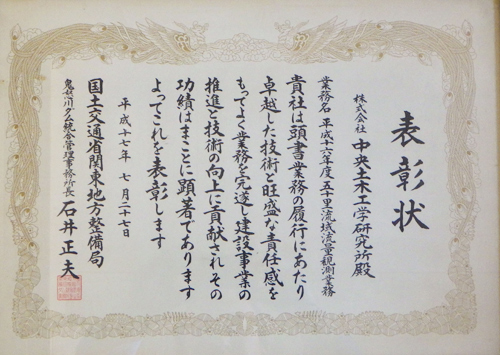 表彰状
株式会社 中央土木工学研究所殿
業務名 平成十六年度五十里流域流量観測業務
貴社は頭書業務の履行にあたり
卓越した技術と旺盛な責任感を
もってよく業務を完遂し建設事業の
推進と技術の向上に貢献されその
功績はまことに顕著であります
よってこれを表彰します
平成十七年 七月二十七日
国土交通省関東地方整備局
鬼怒川ダム統合管理事務所長 石井正夫